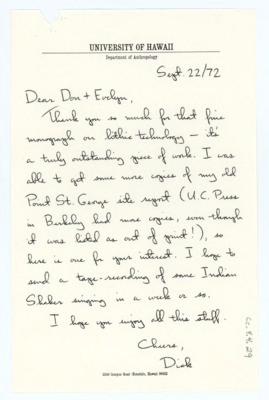 UNIVERSITY OF HAWAII
Department of Anthropology
Sept. 22/72
Dear Don + Evelyn,
Thank you so much for that fine
monograph on lithic technology — it's
a truly outstanding piece of work. I was
able to get some more copies of my old
Point St. George site report (U.C. Press
in Berkeley had more copies, even though
it was listed as out of print!), so
here is one for your interest. I hope to
send a tape-recording of some Indian
Shaker singing in a week or so.
I hope you enjoy all this stuff.
Cheers,
Dick
Honolulu, Hawaii 96822